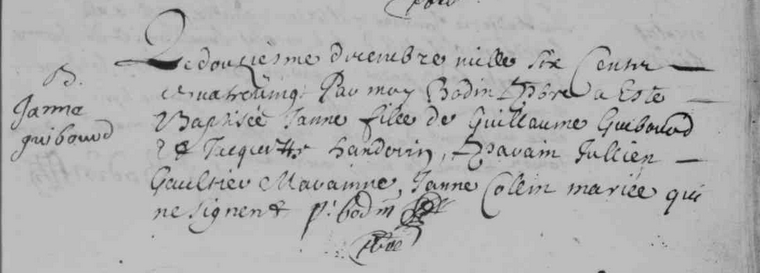 Le douziesme decembre mille six Centz
quatrevingt Par moy Bodin pbre a Esté
B. Baptisée Janne fille de Guillaume Guiboud
Janne guiboud
et Jacquette handovin, Parain Jullien
Gaultier Marainne, Janne Collin mariée qui
ne signent P. bodin
pbre